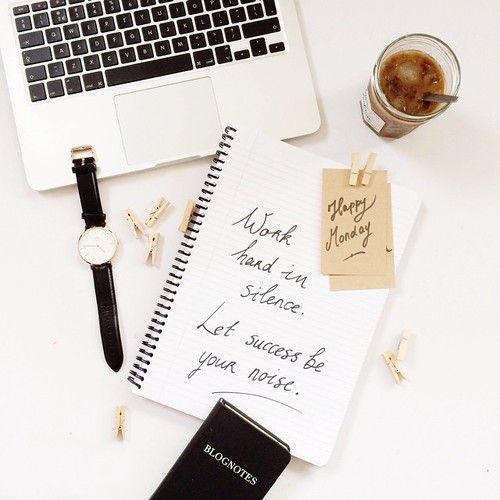 Work
hard in
silence.
Let success be
your noise.
Happy
Monday
BLOGNOTES